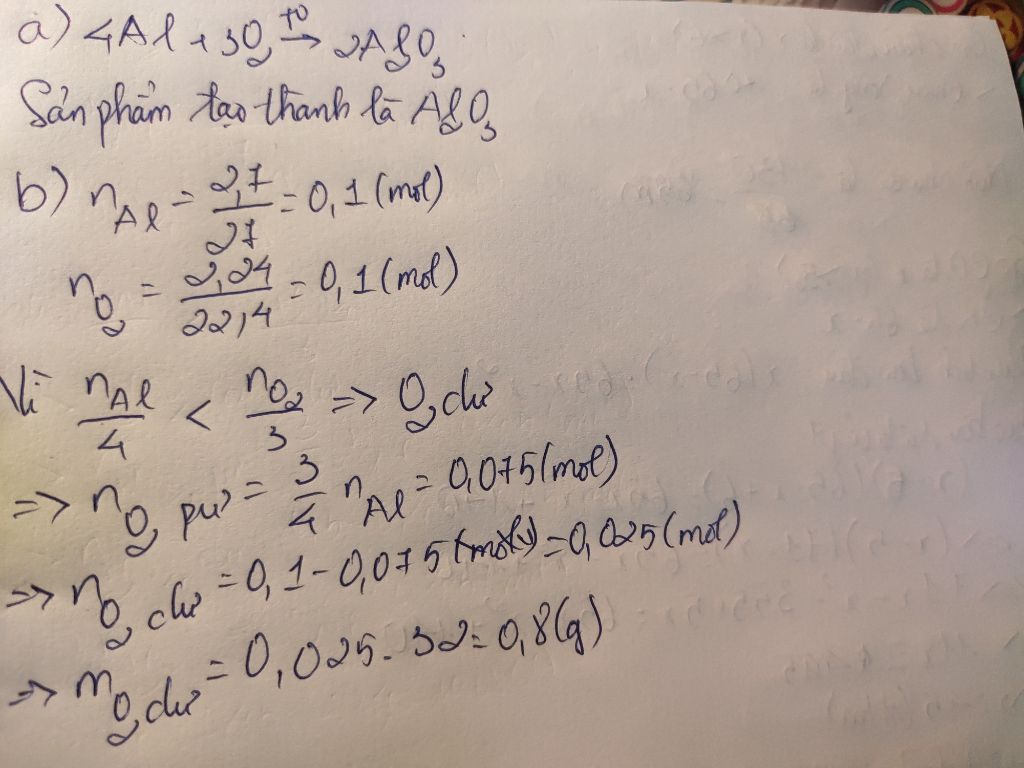 a) 4Al + 3O₂ →(t⁰) 2Al₂O₃
Sản phẩm tạo thành là Al₂O₃
b) n_Al = 2,7/27 = 0,1 (mol)
n_O₂ = 2,24/22,4 = 0,1 (mol)
Vì n_Al/4 < n_O₂/3 => O₂ dư
=> n_O₂ pư = 3/4 n_Al = 0,075 (mol)
=> n_O₂ dư = 0,1 - 0,075 = 0,025 (mol)
=> m_O₂ dư = 0,025 . 32 = 0,8 (g)